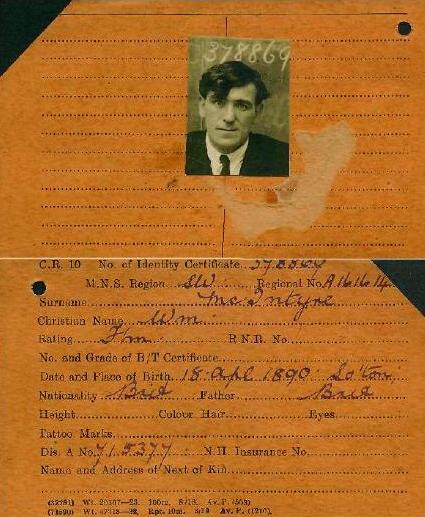 378869
C.R. 10 No. of Identity Certificate 378869
M.N.S. Region SW Regional No. A161614
Surname Mc Intyre
Christian Name Wm
Rating F/m R.N.R. No.
No. and Grade of B/T Certificate
Date and Place of Birth 18 Apl 1890 So'ton
Nationality Brit Father Brit
Height Colour Hair Eyes
Tattoo Marks
Dis. A No. 715377 N.H. Insurance No.
Name and Address of Next of Kin
Wt. 100m. 8/18. Av. P.
Wt. Rpt. 10m. 8/19 Av. P. (1216).